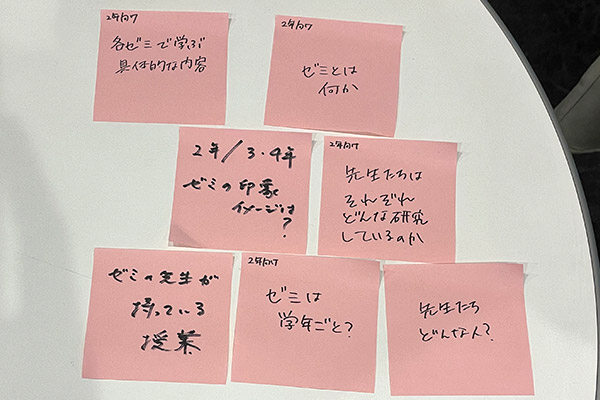 2年向け
各ゼミで学ぶ
具体的な内容
2年向け
ゼミとは
何か
2年/3・4年
ゼミの印象
イメージは
?
2年向け
先生たちは
それぞれ
どんな研究
しているのか
ゼミの先生が
持っている
授業
2年向け
ゼミは
学年ごと?
先生たち
どんな人?